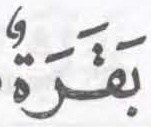 بَقَرَةٌ